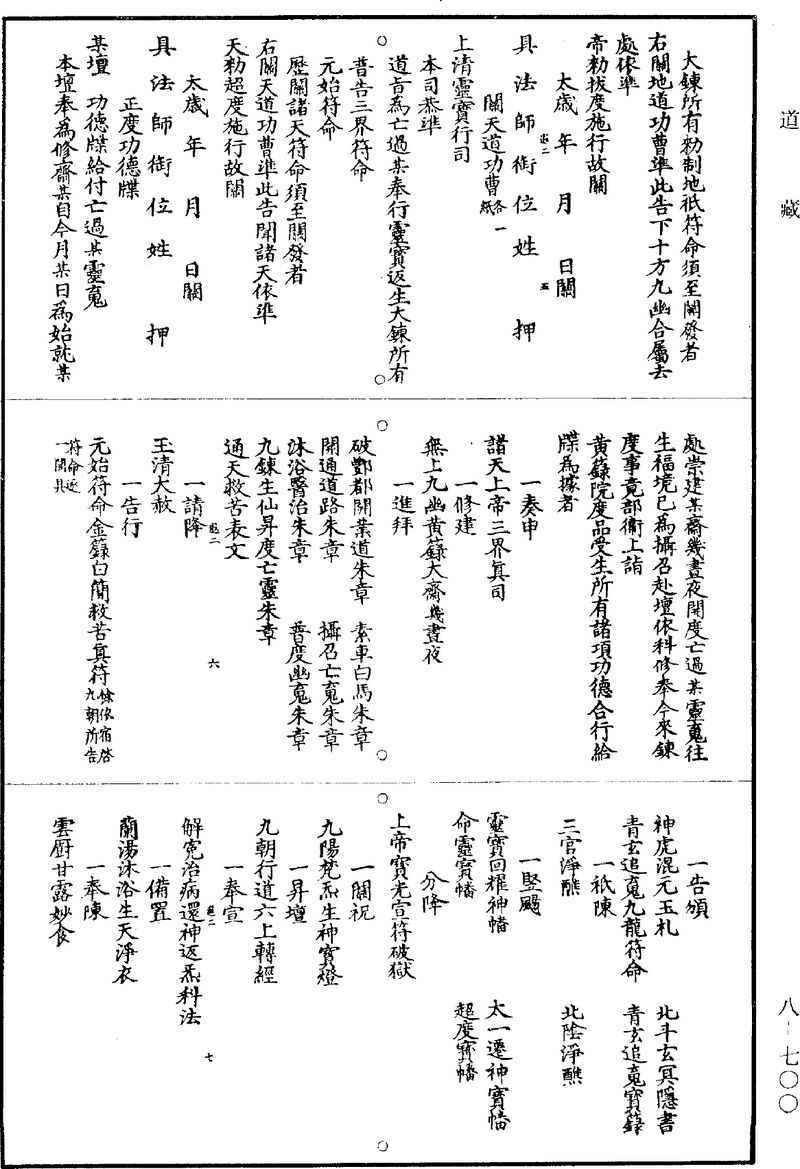 道藏
八-七〇〇
大鍊所有勑制地祇符命須至關發者
右關地道功曹準此告下十方九幽合屬去
處依準
帝勑拔度施行故關
太歲年月日關
具法師銜位姓押
關天道功曹各一紙
上清靈寶行司
本司恭準
道旨為亡過某奉行靈寶返生大鍊所有
普告三界符命
元始符命
歷關諸天符命須至關發者
右關天道功曹準此告聞諸天依準
天勑超度施行故關
太歲年月日關
具法師銜位姓押
正度功德牒
某壇功德牒給付亡過某靈䰟
本壇奉為修齋某自今月某日為始就某
處崇建某齋幾晝夜開度亡過某靈䰟往
生福境已為攝召赴壇依科修奉今來鍊
度事竟部衛上詣
黃籙院度品受生所有諸項功德合行給
牒為據者
一奏申
諸天上帝三界真司
一修建
無上九幽黃籙大齋幾晝夜
一進拜
破酆都開業道朱章 素車白馬朱章
開通道路朱章 攝召亡䰟朱章
沐浴醫治朱章 普度幽䰟朱章
九鍊生仙昇度亡靈朱章
通天救苦表文
一請降
玉清大赦
一告行
元始符命金籙白簡救苦真符餘依宿啓九朝所告
符命逐一開具
一告頒
神虎混元玉札 北斗玄冥隱書
青玄追䰟九龍符命 青玄追䰟寶籙
一祇陳
三官淨醮 北陰淨醮
一竪颺
靈寶回耀神幡 太一遷神寶幡
命靈寶幡 超度寶幡
分降
上帝寶光宣符破獄
一關祝
九陽梵炁生神寶燈
一昇壇
九朝行道六上轉經
一奉宣
解寃治病還神返炁科法
一備置
蘭湯沐浴生天淨衣
一奉陳
雲厨甘露妙食